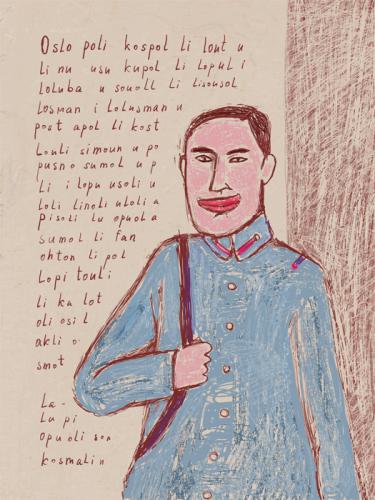 Oslo poli kospol li lont u
li nu usu kupol li lopul i
loluba u souoll li lisonsol
losman i lolusman u
post apol li kost
Louli simoun u po
pusno sumol u p
li i lopu usoli u
loli linoli uloli a
pisoli lu opuola
sumol li fan
ohton li pol
Lopi touli
li ka lot
oli osil
akli o
smot
La-
Lu pi
opuoli son
kosmalin